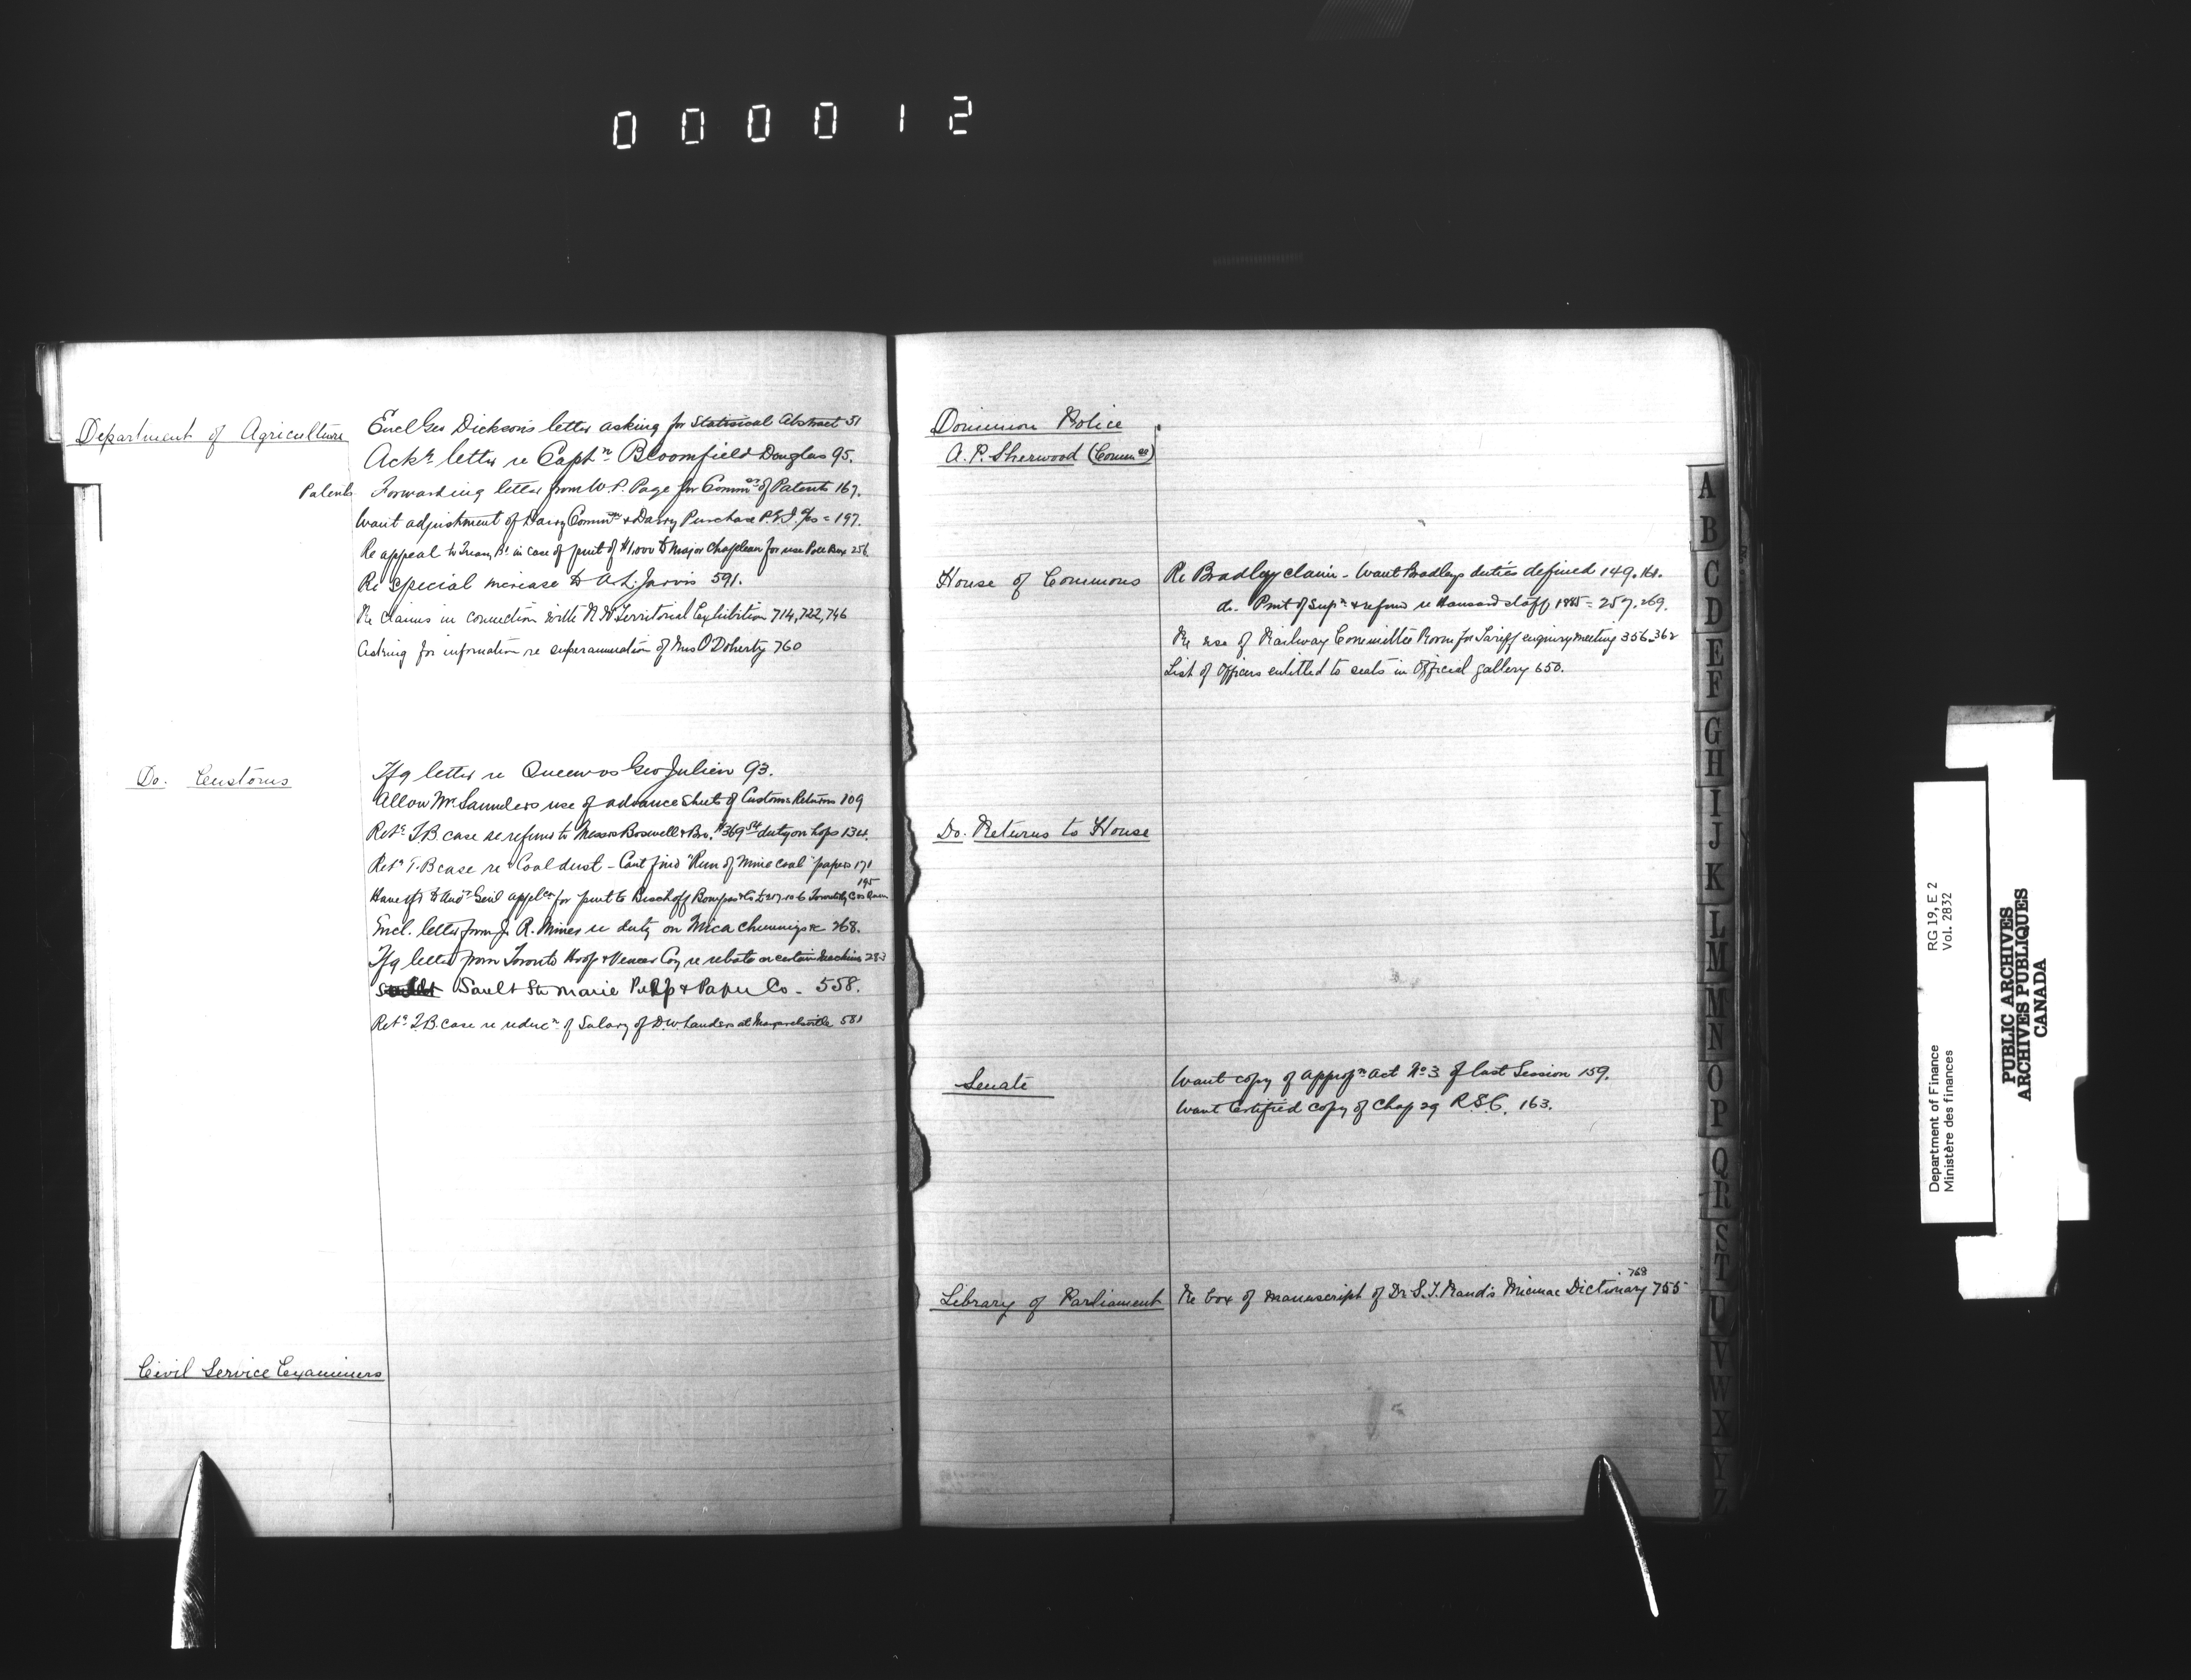 000012
Department of Agriculture
Encl Geo Dickson's letter asking for Statisical Abstract 51
Ackg letter re Captn Bloomfield Douglas 95.
Patents Forwarding letter from W. P. Page for Commrs of Patents 167.
Want adjustment of Dairy Commr & Dairy Purchase P.E.I. 197.
Re appeal to Treasy Bd in case of pmt of $1.000 to Major Chapleau for use Poll Box 256
Re special increase to A. L. Jarvis 591.
Re claims in connection with N W Territorial Exhibition 714, 722, 746
Asking for information re superannuation of Mrs O'Doherty 760
Do. Customs
Tfg letter re Queen vs Geo Julien 93.
Allow Mr Saunders use of advance sheets of Customs Returns 109
Retg T.B. case re refund to Messrs Boswell & Bro. $369 duty on hops 134.
Retg T.B case re Coal dust - Cant find "Run of Mine coal" papers 171
195
Have tfd to Audr Genl applcn for pmt to Bischoff Bompas & Co
Encl. letter from J. R. Mines re duty on Mica &c 268.
Tfg letter from Toronto Hoop & Veneer Coy re rebate on certain machines 283
Sault Ste Marie Pulp & Paper Co - 558.
Retg T.B. case re reducn of Salary of D.W. Landers at Margaretsville 581
Civil Service Examiners
Dominion Police
A. P. Sherwood (Commr)
House of Commons
Re Bradley claim - Want Bradleys duties defined 149. 161.
do. Pmt of Supn & refund re Hansard staff 1885 = 257. 269.
Re use of Railway Committee Room for Tariff enquiry meeting 356-362
List of Officers entitled to seats in Official gallery 650.
Do. Returns to House
Senate
Want copy of appropn act No 3 of last Session 159.
Want Certified copy of Chap 29 R.S.C. 163.
768
Library of Parliament
Re box of manuscript of Dr S. T. Rand's Micmac Dictionary 755
A
B
C
D
E
F
G
H
I
J
K
L
M
M
N
O
P
Q
R
S
T
U
V
W
X
Y
Z
Department of Finance
Ministère des finances
RG 19, E 2
Vol. 2832
PUBLIC ARCHIVES
ARCHIVES PUBLIQUES
CANADA